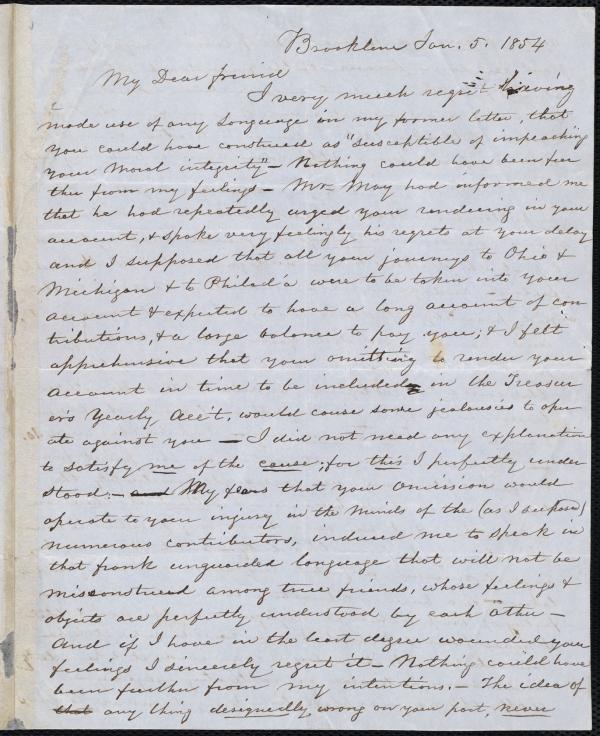 Brookline Jan. 5. 1854
My Dear friend
I very much regret having
made use of any Language in my former letter, that
you could have construed as "susceptible of impeaching
your moral integrity" - Nothing could have been fur
ther from my feelings - Mr. May had informed me
that he had repeatedly urged your rendering in your
account, & spoke very feelingly his regrets at your delay
and I supposed that all your journeys to Ohio &
Michigan & to Philad'a were to be taken into your
account & expected to have a long account of con
tributions, & a large balance to pay you; & I felt
apprehensive that your omitting to render your
account in time to be included in the Treasur
er's Yearly Acc't, would cause some jealousies to oper
ate against you - I did not need any explanation
to satisfy me of the cause; for this I perfectly under
stood; - and My fears that your omission would
operate to your injury in the minds of the (as I supposed)
numerous contributors, induced me to speak in
that frank unguarded language that will not be
misconstrued among true friends, whose feelings &
objects are perfectly understood by each other -
And if I have in the least degree wounded your
feelings I sincerely regret it - Nothing could have
been further from my intentions. - The idea of
that any thing designedly wrong on your part, never